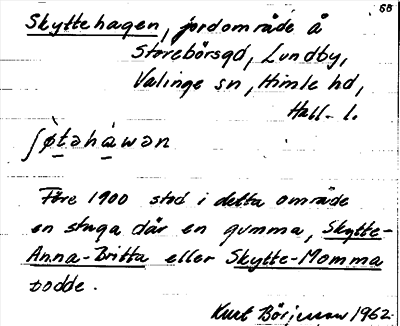 68
Skyttehagen, jordområde å
Storebörsgd, Lundby,
Valinge sn, Himle hd,
Hall- l.
ʃø̀təhàwən
Före 1900 stod i detta område
en stuga där en gumma, Skytte-
Anna-Britta eller Skytte-Momma
bodde.
Kurt Börjesson 1962.